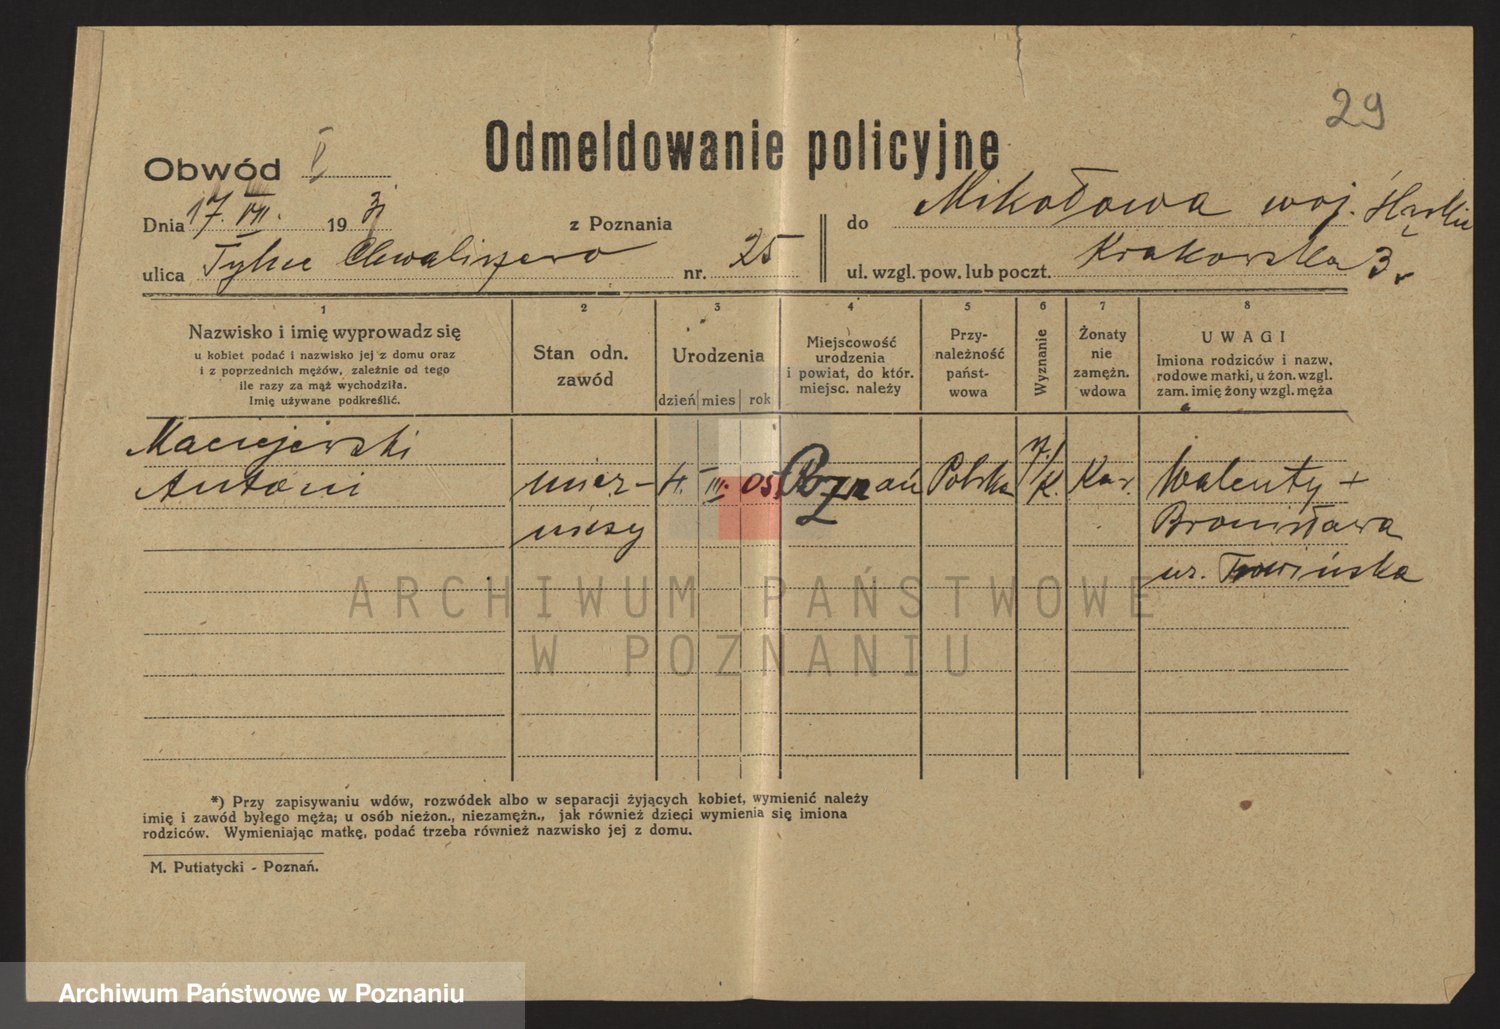 29
Odmeldowanie policyjne
Obwód I
Dnia 17. VII. 1931 z Poznania do Mikołowa woj. Śląskie
ulica Tylne Chwaliszewo nr. 25 ul. wzgl. pow. lub poczt. Krakowska 3
1 2 3 4 5 6 7 8
Nazwisko i imię wyprowadz się
u kobiet podać i nazwisko jej z domu oraz
i z poprzednich mężów, zależnie od tego
ile razy za mąż wychodziła.
Imię używane podkreślić.
Stan odn.
zawód
Urodzenia
dzień mies rok
Miejscowość
urodzenia
i powiat, do któr.
miejsc. należy
Przy-
należność
państ-
wowa
Wyznanie
Żonaty
nie
zamężn.
wdowa
UWAGI
Imiona rodziców i nazw.
rodowe matki, u żon. wzgl.
zam. imię żony wzgl. męża
Maciejewski
Antoni mier- 4. III. 05 Poznań Polska r./k. Kaw. Walenty +
niczy Bronisława
ur.
ARCHIWUM PAŃSTWOWE
W POZNANIU
*) Przy zapisywaniu wdów, rozwódek albo w separacji żyjących kobiet, wymienić należy
imię i zawód byłego męża; u osób nieżon., niezamężn., jak również dzieci wymienia się imiona
rodziców. Wymieniając matkę, podać trzeba również nazwisko jej z domu.
M. Putiatycki - Poznań.
Archiwum Państwowe w Poznaniu